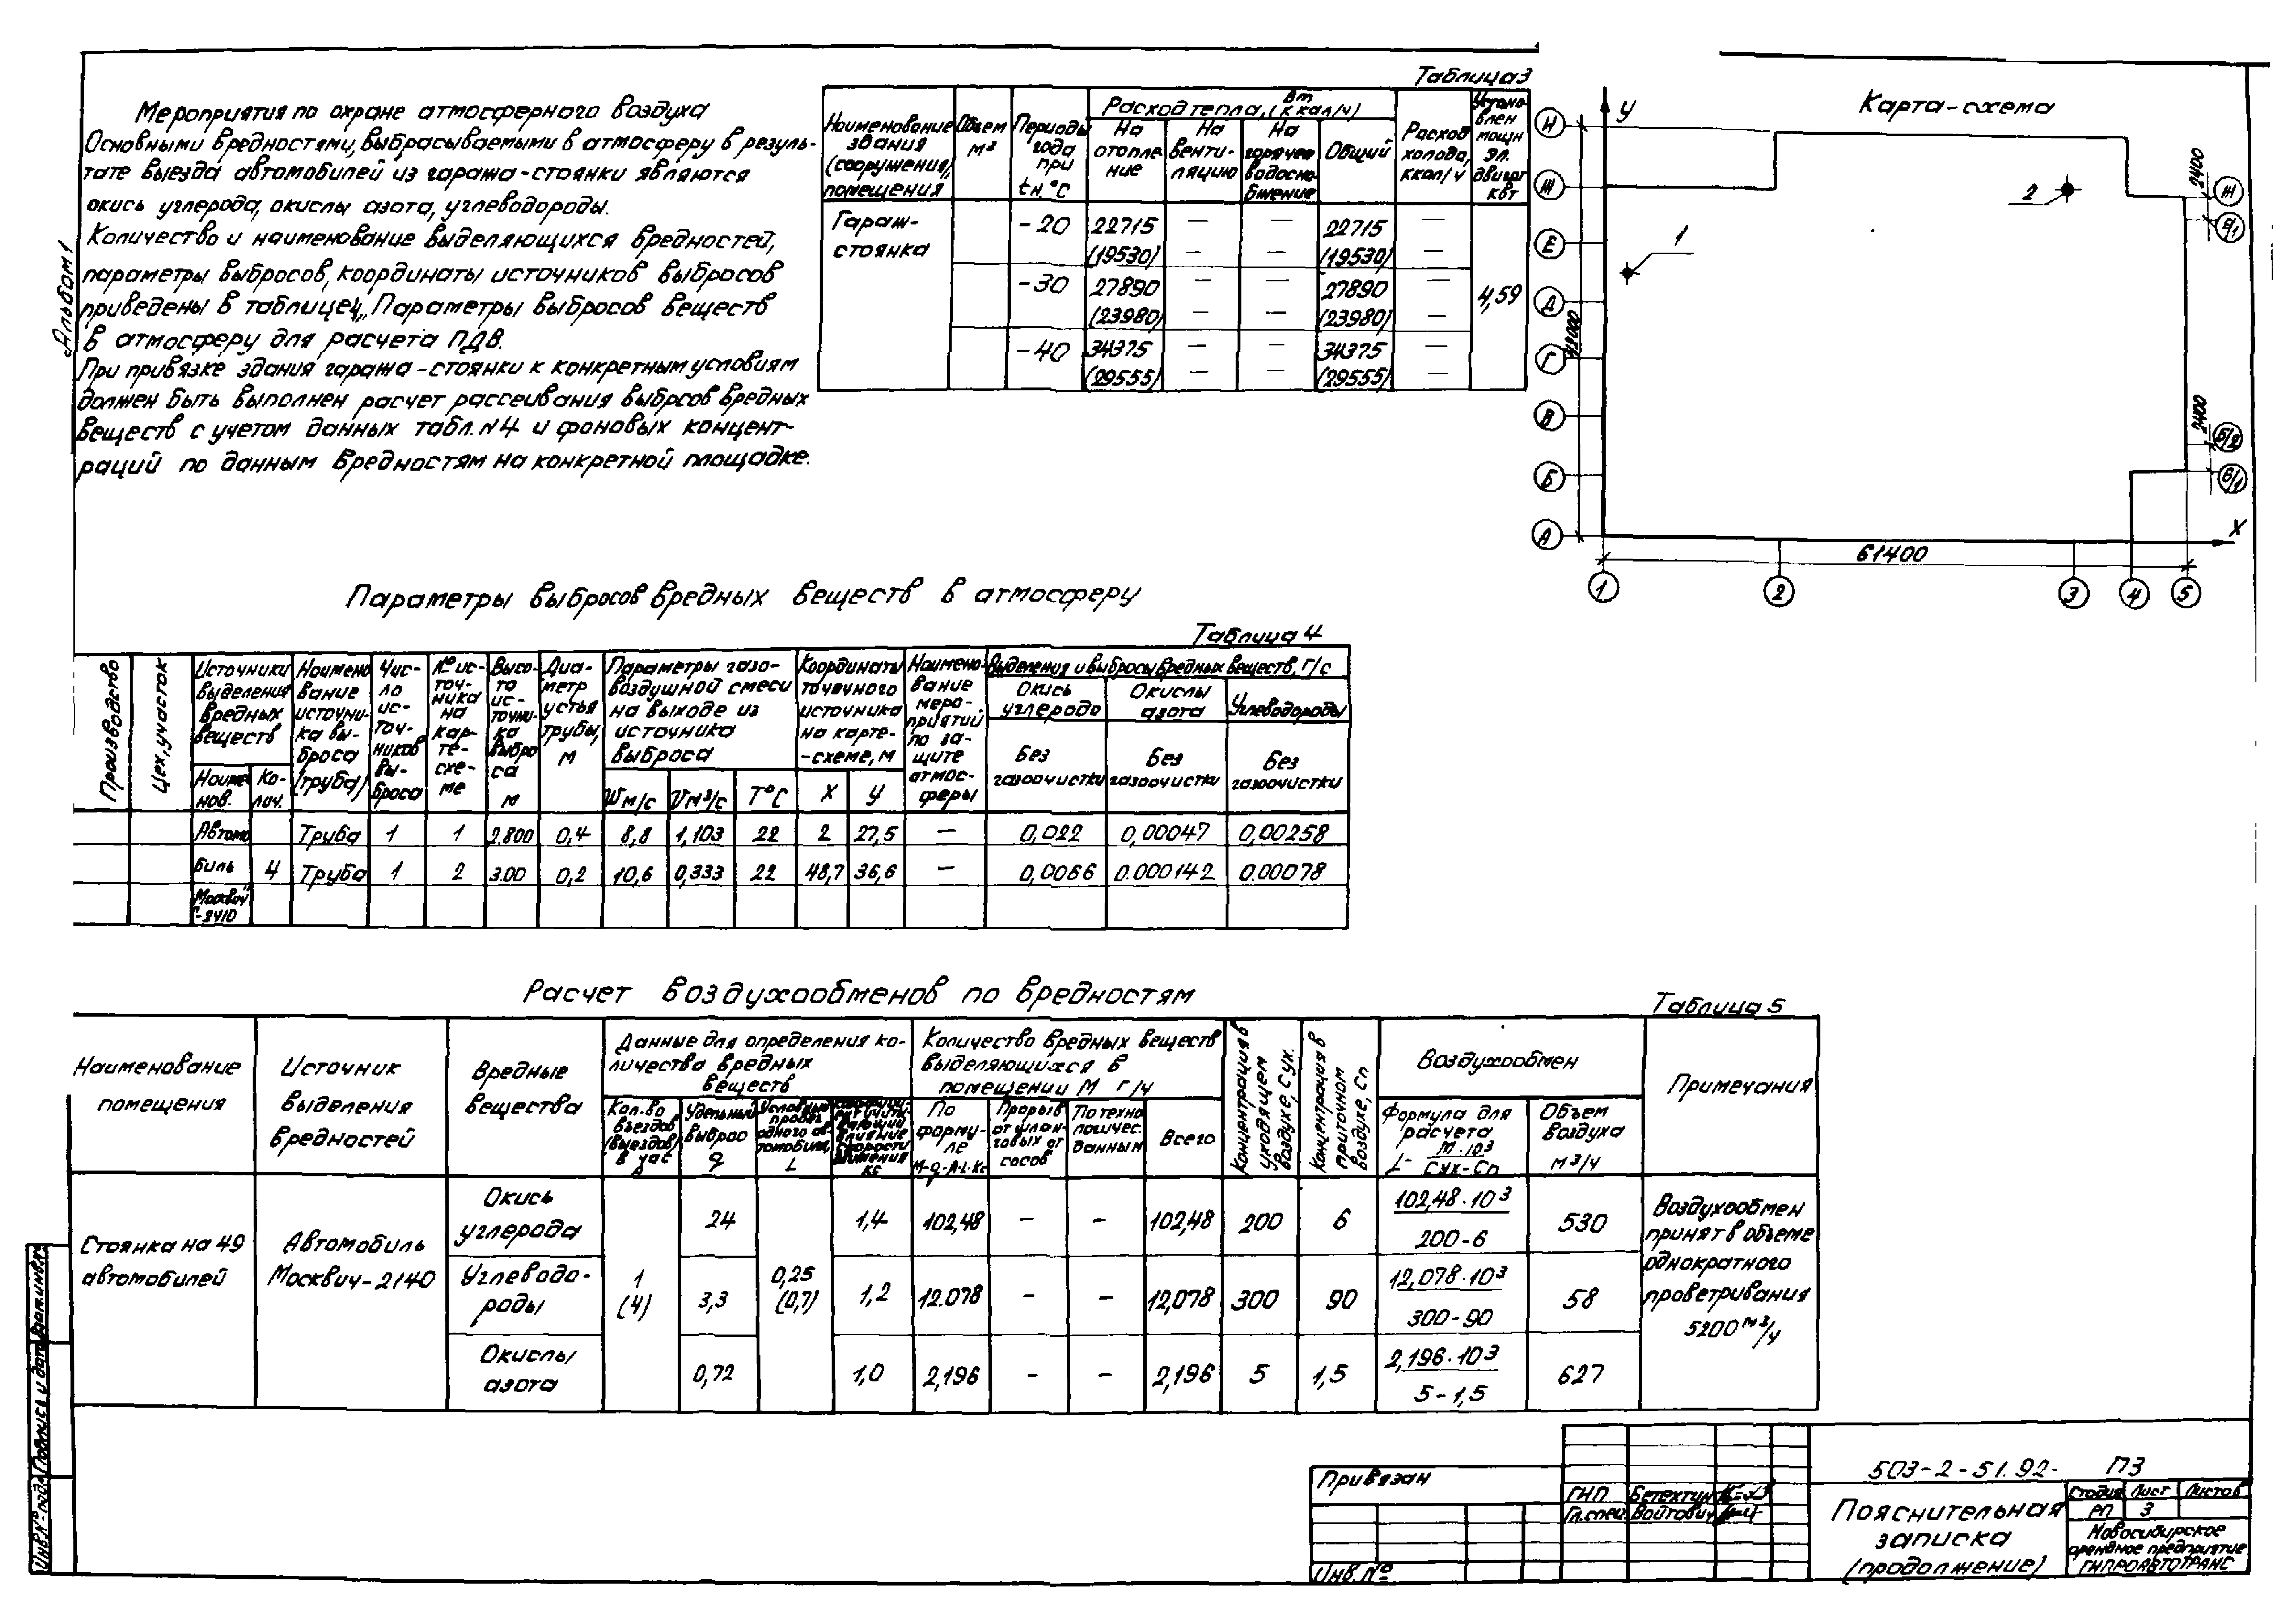 Альбом 1
Мероприятия по охране атмосферного воздуха
Основными вредностями, выбрасываемыми в атмосферу в резуль-
тате выезда автомобилей из гаража-стоянки являются
окись углерода, окислы азота, углеводороды.
Количество и наименование выделяющихся вредностей,
параметры выбросов, координаты источников выбросов
приведены в таблице 4 „Параметры выбросов веществ
в атмосферу для расчета ПДВ.
При привязке здания гаража-стоянки к конкретным условиям
должен быть выполнен расчет рассеивания выбрсов вредных
веществ с учетом данных табл. N4 и фоновых концент-
раций по данным вредностям на конкретной площадке.
Таблица 3
Наименование здания (сооружения), помещения
Объем м³
Периоды года при tн, °С
Расход тепла, Вт (ккал/ч)
На отопле ние
На венти- ляцию
На горячее водосна- бжение
Общий
Расход холода, ккал/ч
Устано- влен мощн эл. двигат квт
Гараж- стоянка
-20 22715 — — 22715 —
(19530) — — (19530) —
-30 27890 — — 27890 — 4,59
(23980) — — (23980) —
-40 34375 — — 34375 —
(29555) — — (29555) —
Карта-схема
У
И
Ж
Е
Д
Г
В
Б
А
42000
1
2
2400
Ж
Е/1
2400
Б/2
Б/1
X
61400
1 2 3 4 5
Параметры выбросов вредных веществ в атмосферу
Таблица 4
Производство
Цех, участок
Источники выделения вредных веществ
Наиме- нов.
Ко- лич.
Наимено вание источни- ка вы- броса (труба)
Чис- ло ис- точ- ников вы- броса
№ ис- точ- ника на кар- те- схе- ме
Высо- та ис- точни- ка выбро са м
Диа- метр устья трубы, м
Параметры газо- воздушной смеси на выходе из источника выброса
W м/с V м³/с T°С
Координаты точечного источника на карте- -схеме, м
X У
Наимено- вание меро- приятий по за- щите атмос- феры
Выделения и выбросы вредных веществ, г/с
Окись углерода
Окислы азота
Углеводороды
Без газоочистки
Без газоочистки
Без газоочистки
Автомо Труба 1 1 2.800 0,4 8,8 1,103 22 2 27,5 — 0,022 0,00047 0,00258
биль 4 Труба 1 2 3.00 0,2 10,6 0,333 22 48,7 36,6 — 0,0066 0.000142 0.00078
Москвич"
-2410
Расчет воздухообменов по вредностям
Таблица 5
Наименование помещения
Источник выделения вредностей
Вредные вещества
Данные для определения ко- личества вредных веществ
Кол-во въездов (выездов) в час А
Удельный выброс q
Условный пробег одного ав- томобиля, L
учиты- вающий влияние скорости движения Кс
Количество вредных веществ выделяющихся в помещении М г/ч
По форму- ле М=q·А·L·Кс
Прорыв от шлан- говых от сосов
По техно логичес. данным
Всего
Концентрация в уходящем воздухе, Сух.
Концентрация в приточном воздухе, Сп
Воздухообмен
Формула для расчета L= М·10³ Сух-Сп
Объем воздуха м³/ч
Примечания
Стоянка на 49 автомобилей
Автомобиль Москвич-2140
1 (4)
0,25 (0,7)
Окись углерода 24 1,4 102,48 – – 102,48 200 6 102,48·10³ 200-6 530
Углеводо- роды 3,3 1,2 12.078 – – 12,078 300 90 12,078·10³ 300-90 58
Окислы азота 0,72 1,0 2,196 – – 2,196 5 1,5 2,196·10³ 5-1,5 627
Воздухообмен
принят в объеме
однократного
проветривания
5200 м³/ч
Взам. инв. №
Подпись и дата
Инв. № подл.
Привязан
Инв. №
ГИП Бетехтин
Гл.спец Войтович
503-2-51.92- ПЗ
Пояснительная
записка
(продолжение)
Стадия Лист Листов
РП 3
Новосибирское
арендное предприятие
ГИПРОАВТОТРАНС